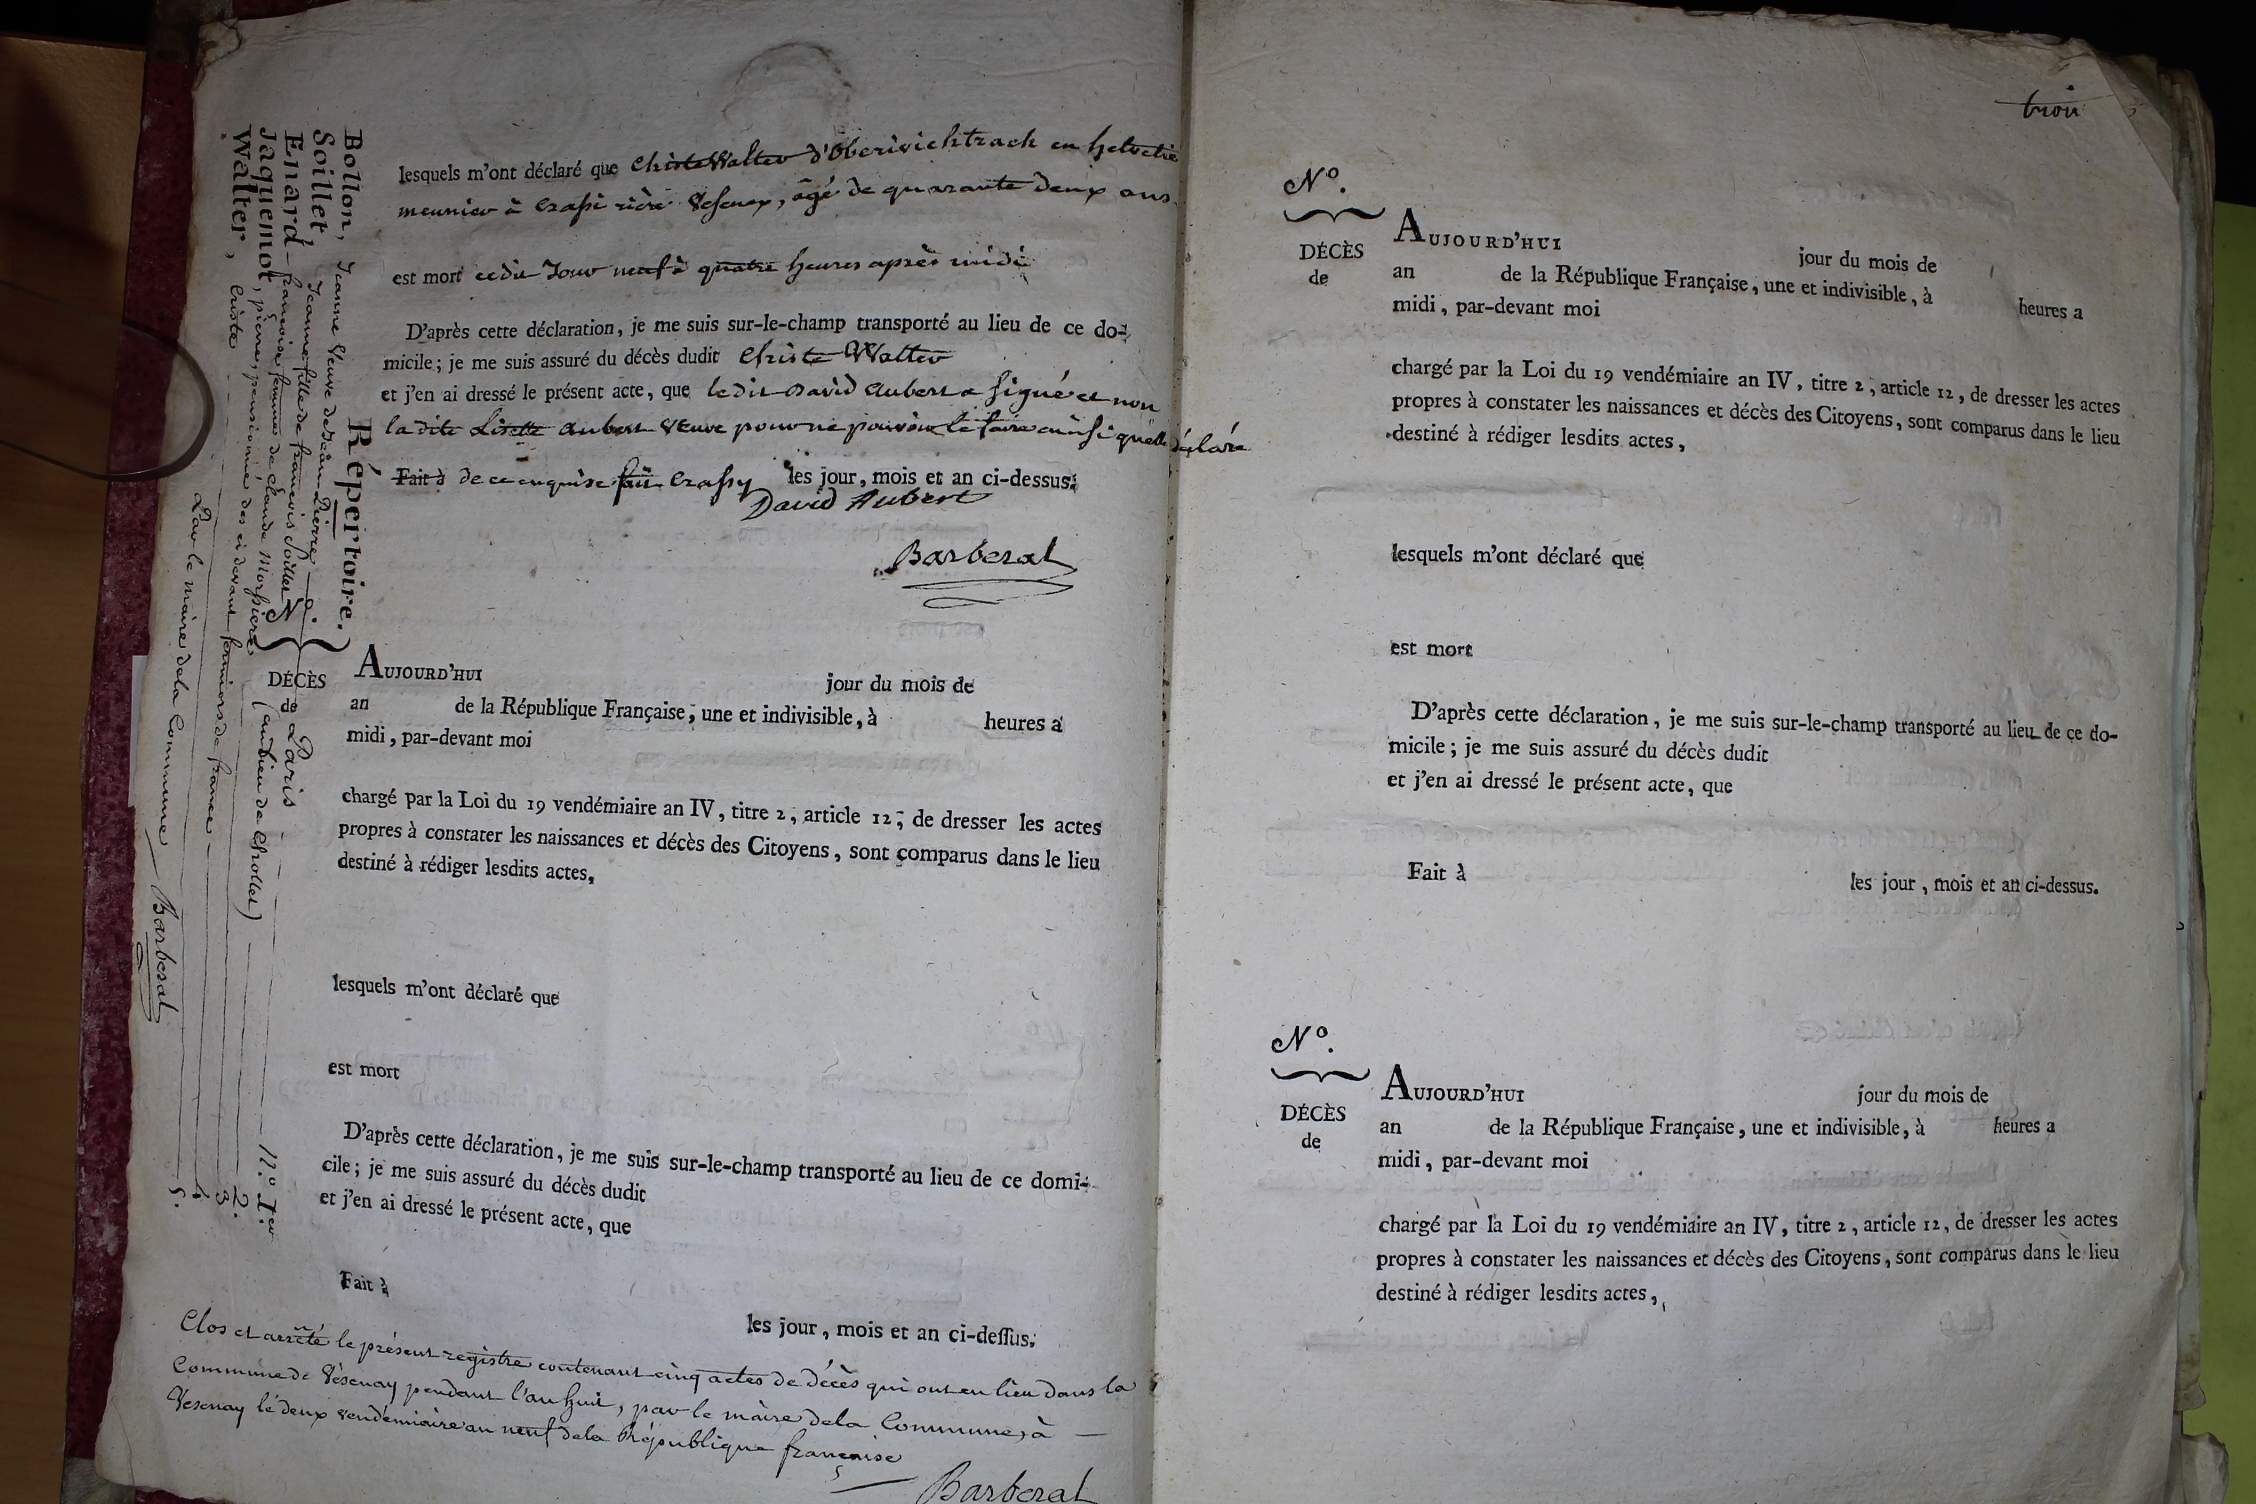 lesquels m'ont déclaré que Christe Walter d'Oberwichtrach en helvetie
meunier à Crassi rière Vesenex, âgé de quarante deux ans
est mort cedit Jour neuf à quatre heures après midi
D'après cette déclaration, je me suis sur-le-champ transporté au lieu de ce do-
micile; je me suis assuré du décès dudit Christe Walter
et j'en ai dressé le présent acte, que ledit David Aubert a signé et non
la dite Lisette Aubert veuve pour ne pouvoir le faire ainsi quelle déclare
Fait à de ce enquise fait Crassy les jour, mois et an ci-dessus.
David Aubert
Barberat
Répertoire.
Bollon, Jeanne Veuve de Jean Pierre
Soillet, Jeanne fille de françois Soillet
Enard françoise femme de Claude Morsiere
Jaquemot, pierre, pensionné des ci devant fermiers de france
Walter, Criste
à Paris
(au lieu de Chollet)
Par le maire de la Commune Barberat
n.º 1.er
2.
3
4
5.
Nº.
DÉCÈS
de
AUJOURD'HUI jour du mois de
an de la République Française, une et indivisible, à heures a
midi, par-devant moi
chargé par la Loi du 19 vendémiaire an IV, titre 2, article 12, de dresser les actes
propres à constater les naissances et décès des Citoyens, sont comparus dans le lieu
destiné à rédiger lesdits actes,
lesquels m'ont déclaré que
est mort
D'après cette déclaration, je me suis sur-le-champ transporté au lieu de ce domi-
cile; je me suis assuré du décès dudit
et j'en ai dressé le présent acte, que
Fait à
les jour, mois et an ci-dessus.
Clos et arrêté le présent registre contenant cinq actes de décès qui ont eu lieu dans la
Commune de Vésenay pendant l'an huit, par le maire de la Commune, à
Vesenay le deux vendémiaire an neuf de la République française
Barberat
trois
Nº.
DÉCÈS
de
AUJOURD'HUI jour du mois de
an de la République Française, une et indivisible, à heures a
midi, par-devant moi
chargé par la Loi du 19 vendémiaire an IV, titre 2, article 12, de dresser les actes
propres à constater les naissances et décès des Citoyens, sont comparus dans le lieu
destiné à rédiger lesdits actes,
lesquels m'ont déclaré que
est mort
D'après cette déclaration, je me suis sur-le-champ transporté au lieu de ce do-
micile; je me suis assuré du décès dudit
et j'en ai dressé le présent acte, que
Fait à les jour, mois et an ci-dessus.
Nº.
DÉCÈS
de
AUJOURD'HUI jour du mois de
an de la République Française, une et indivisible, à heures a
midi, par-devant moi
chargé par la Loi du 19 vendémiaire an IV, titre 2, article 12, de dresser les actes
propres à constater les naissances et décès des Citoyens, sont comparus dans le lieu
destiné à rédiger lesdits actes,